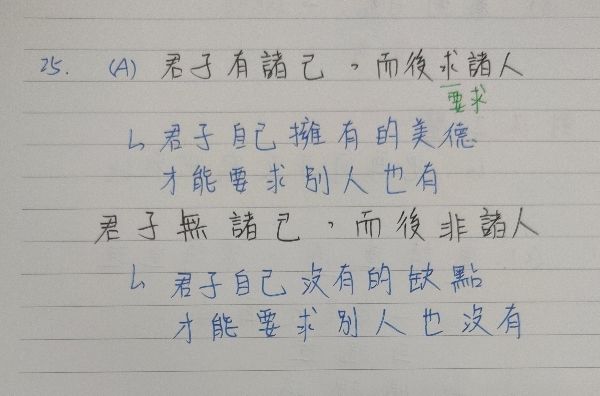 25. (A) 君子有諸己，而後求諸人
要求
↳君子自己擁有的美德
才能要求別人也有
君子無諸己，而後非諸人
↳君子自己沒有的缺點
才能要求別人也沒有